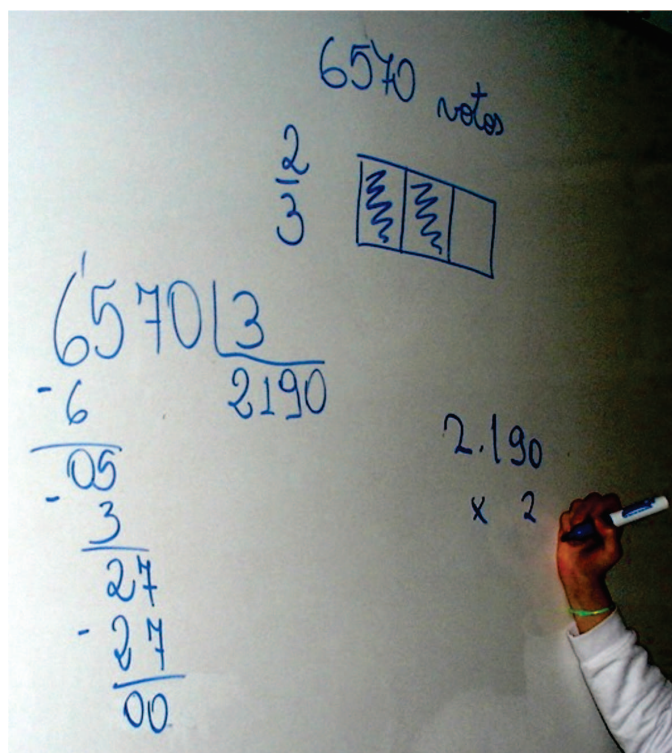 6570 votos
2
3
6570 3
2190
-6
05
-3
27
-27
00
2.190
x 2